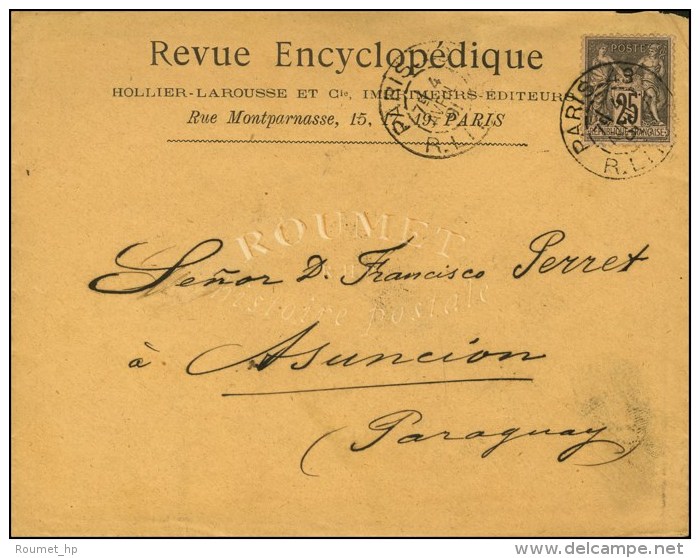 Revue Encyclopédique
HOLLIER-LAROUSSE ET Cie, IMPRIMEURS-ÉDITEURS
Rue Montparnasse, 15, 17, 19, PARIS
PARIS
R. LI
POSTE
25
PARIS
R. LI
ROUMET
histoire postale
Señor D. Francisco Perret
à Asuncion
(Paraguay)
Roumet_hp
www.delcampe.net